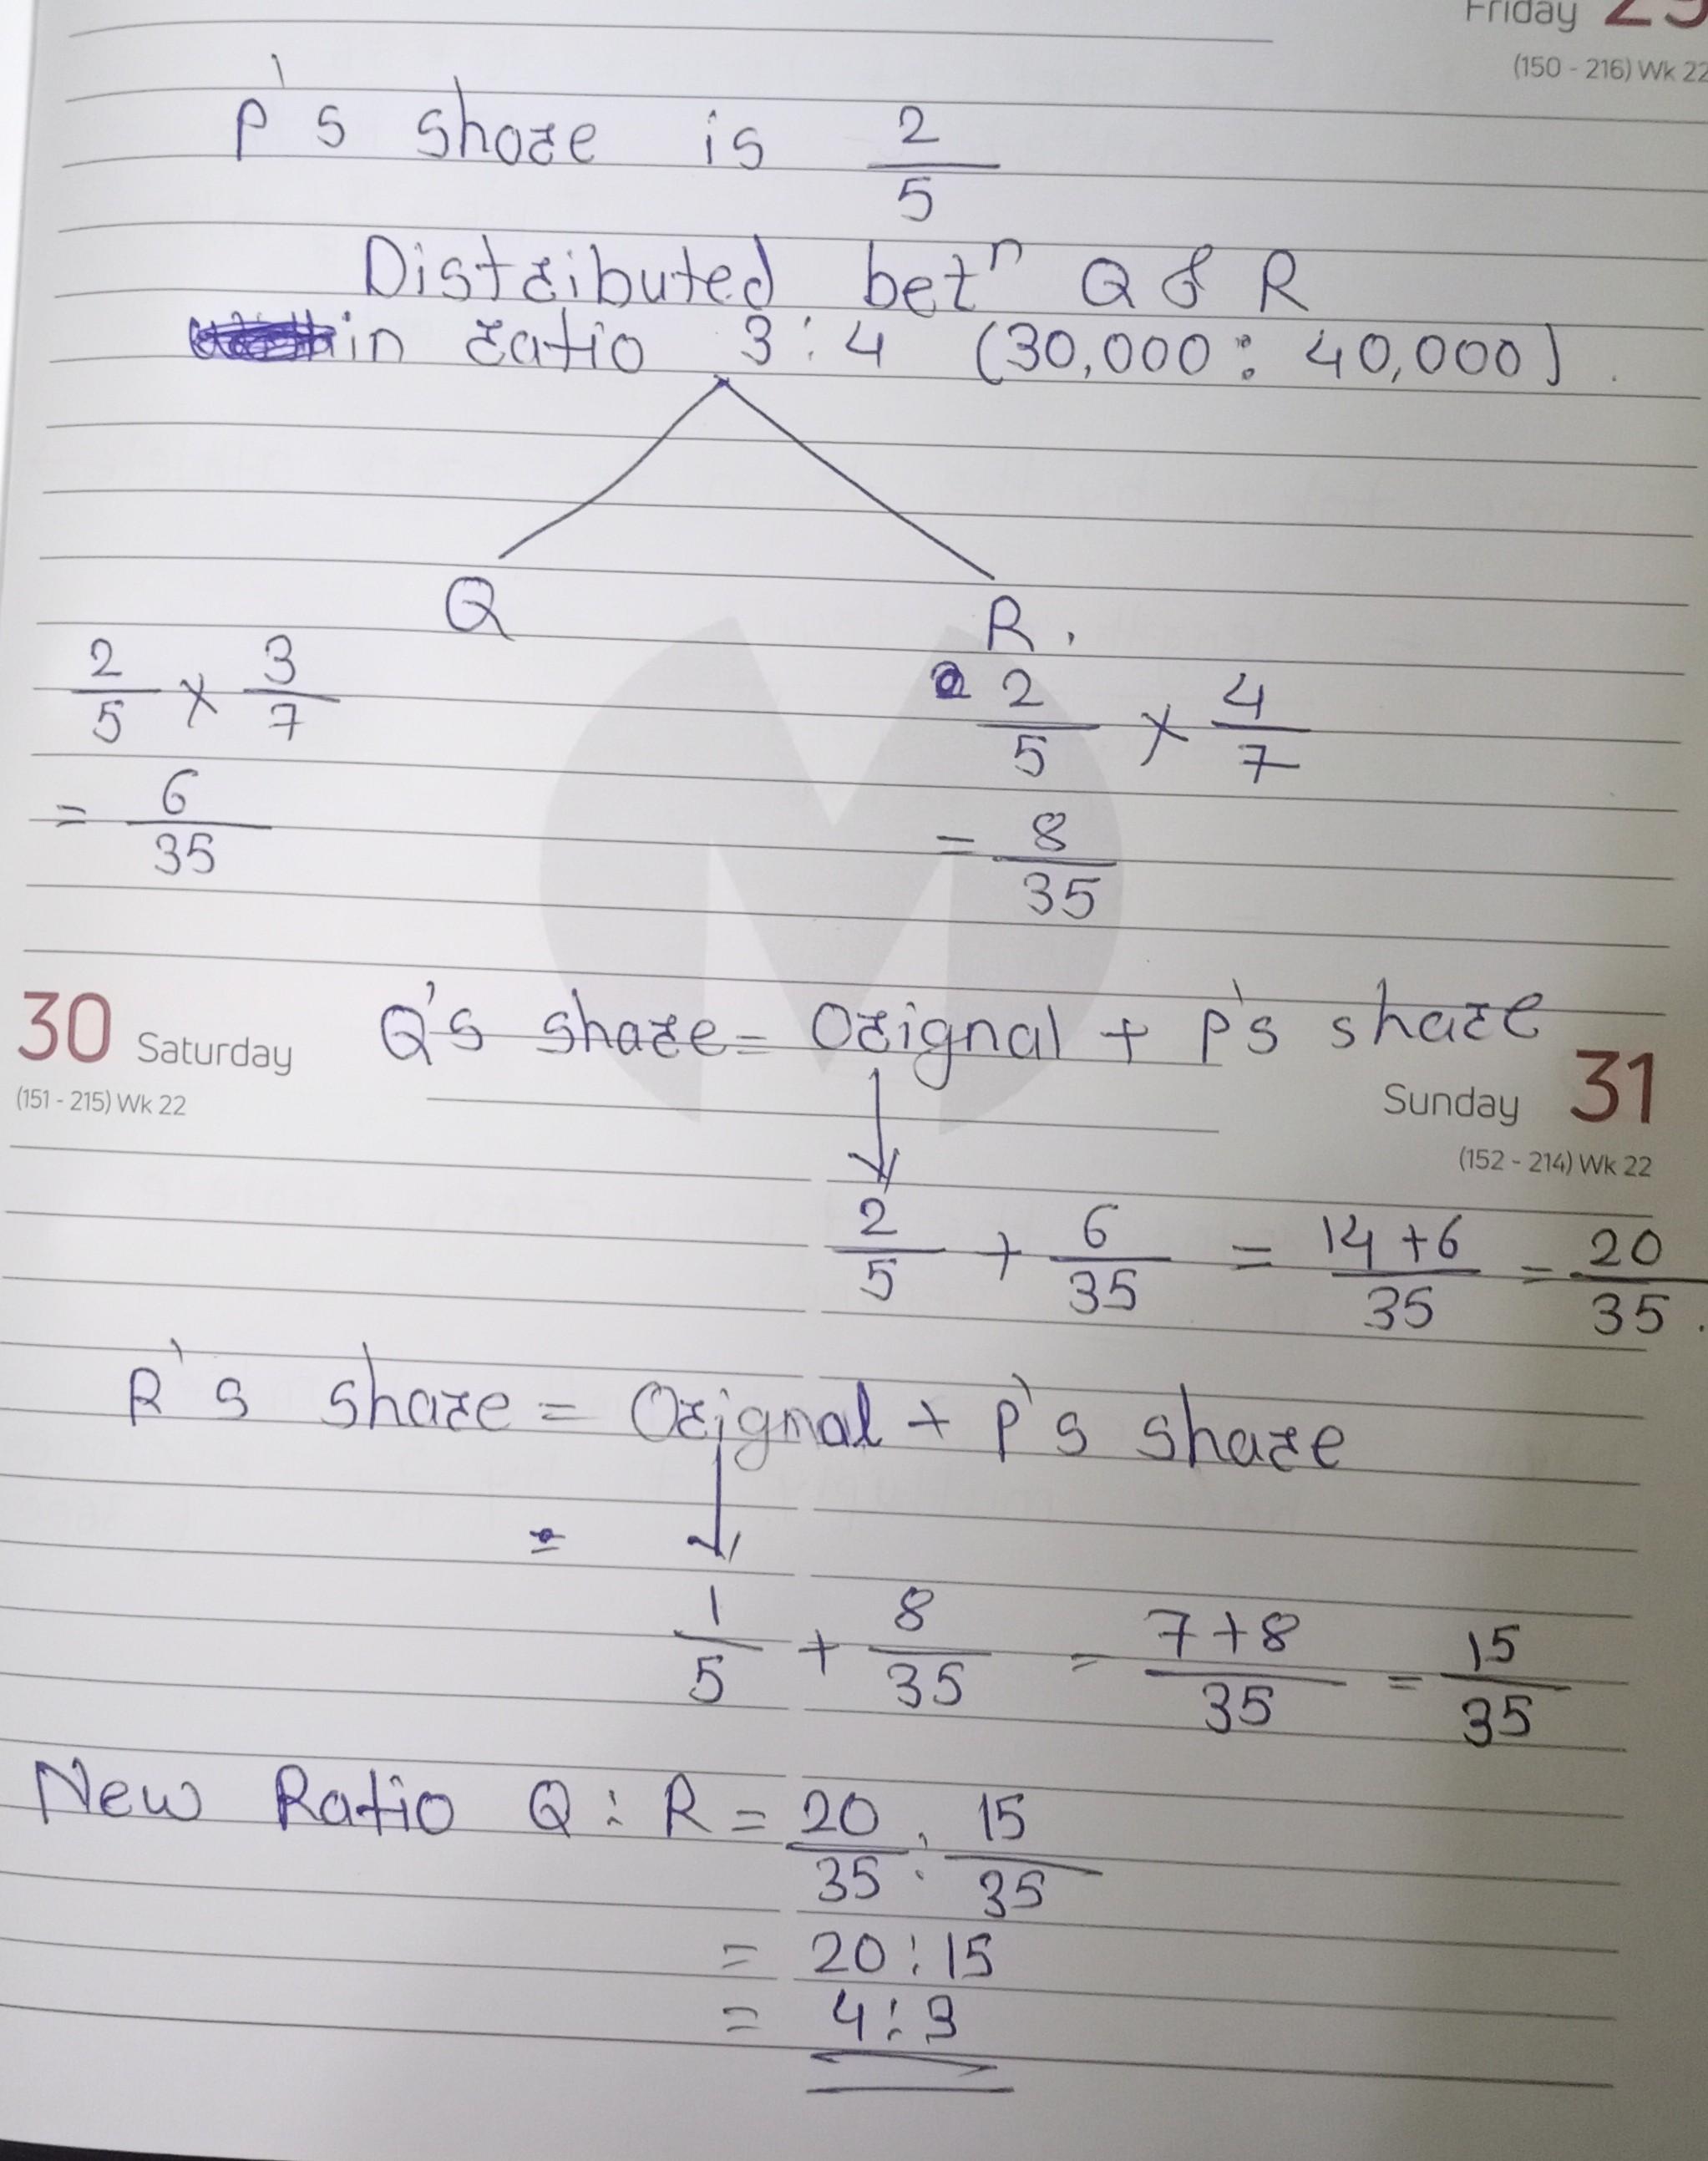 Friday 29
(150 - 216) Wk 22
P's share is 2/5
Distributed betⁿ Q & R
in ratio 3:4 (30,000 : 40,000)
Q
R.
2/5 × 3/7
2/5 × 4/7
= 6/35
= 8/35
30 Saturday
(151 - 215) Wk 22
Q's share = Orignal + P's share
Sunday 31
(152 - 214) Wk 22
2/5 + 6/35 = 14+6/35 = 20/35.
R's share = Orignal + P's share
=
1/5 + 8/35 = 7+8/35 = 15/35
New Ratio Q : R = 20/35 : 15/35
= 20:15
= 4:3